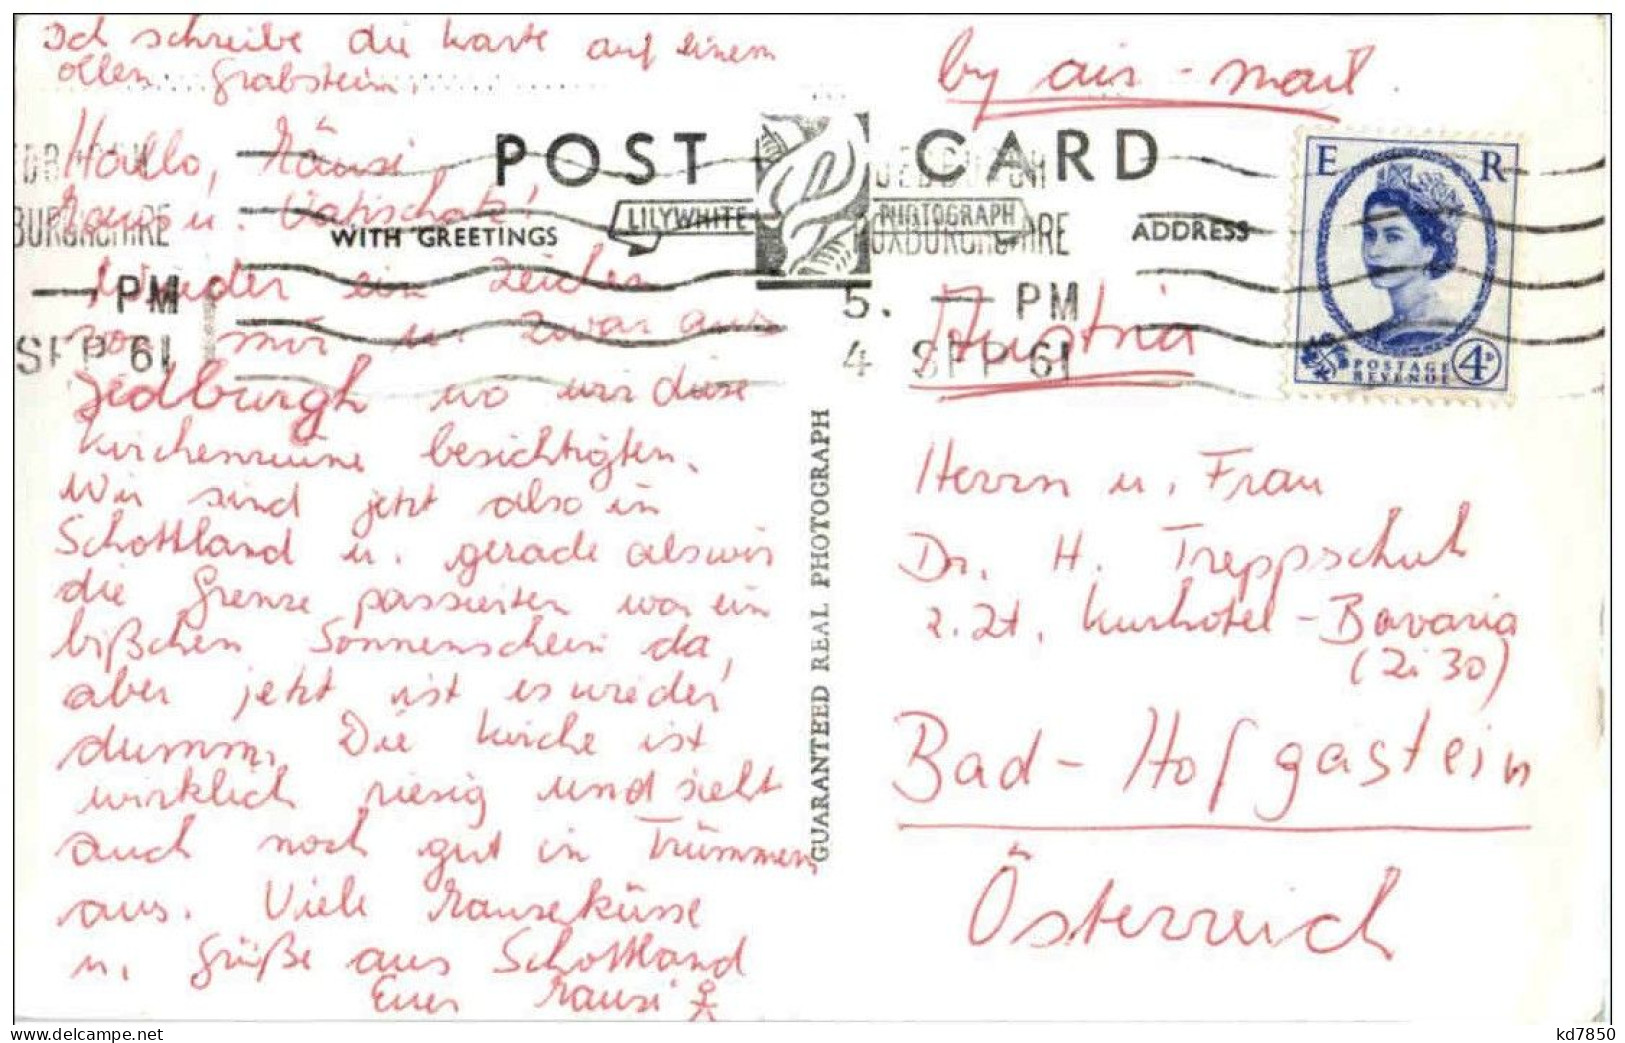 Ich schreibe die Karte auf einem
ollen Grabstein.
by air-mail.
Hallo,
POST CARD
JEDBURGH
u. Vatischatz!
LILYWHITE
PHOTOGRAPH
ROXBURGHSHIRE
WITH GREETINGS
ADDRESS
E R
POSTAGE
REVENUE
4D
Wieder ein Zeichen
5. — PM
4 SEP 61
— PM
SEP 61
von mir u. zwar aus
Jedburgh wo wir diese
Kirchenruine besichtigten.
Wir sind jetzt also in
Schottland u. gerade als wir
die Grenze passierten war ein
bißchen Sonnenschein da,
aber jetzt ist es wieder
dumm. Die Kirche ist
wirklich riesig und sieht
auch noch gut in Trümmern
aus. Viele Rauseküsse
u. Grüße aus Schottland
Euer Rausi
GUARANTEED REAL PHOTOGRAPH
Austria
Herrn u. Frau
Dr. H. Treppschuh
z.Zt. Kurhotel-Bavaria
(Zi 30)
Bad-Hofgastein
Österreich
www.delcampe.net
kd7850